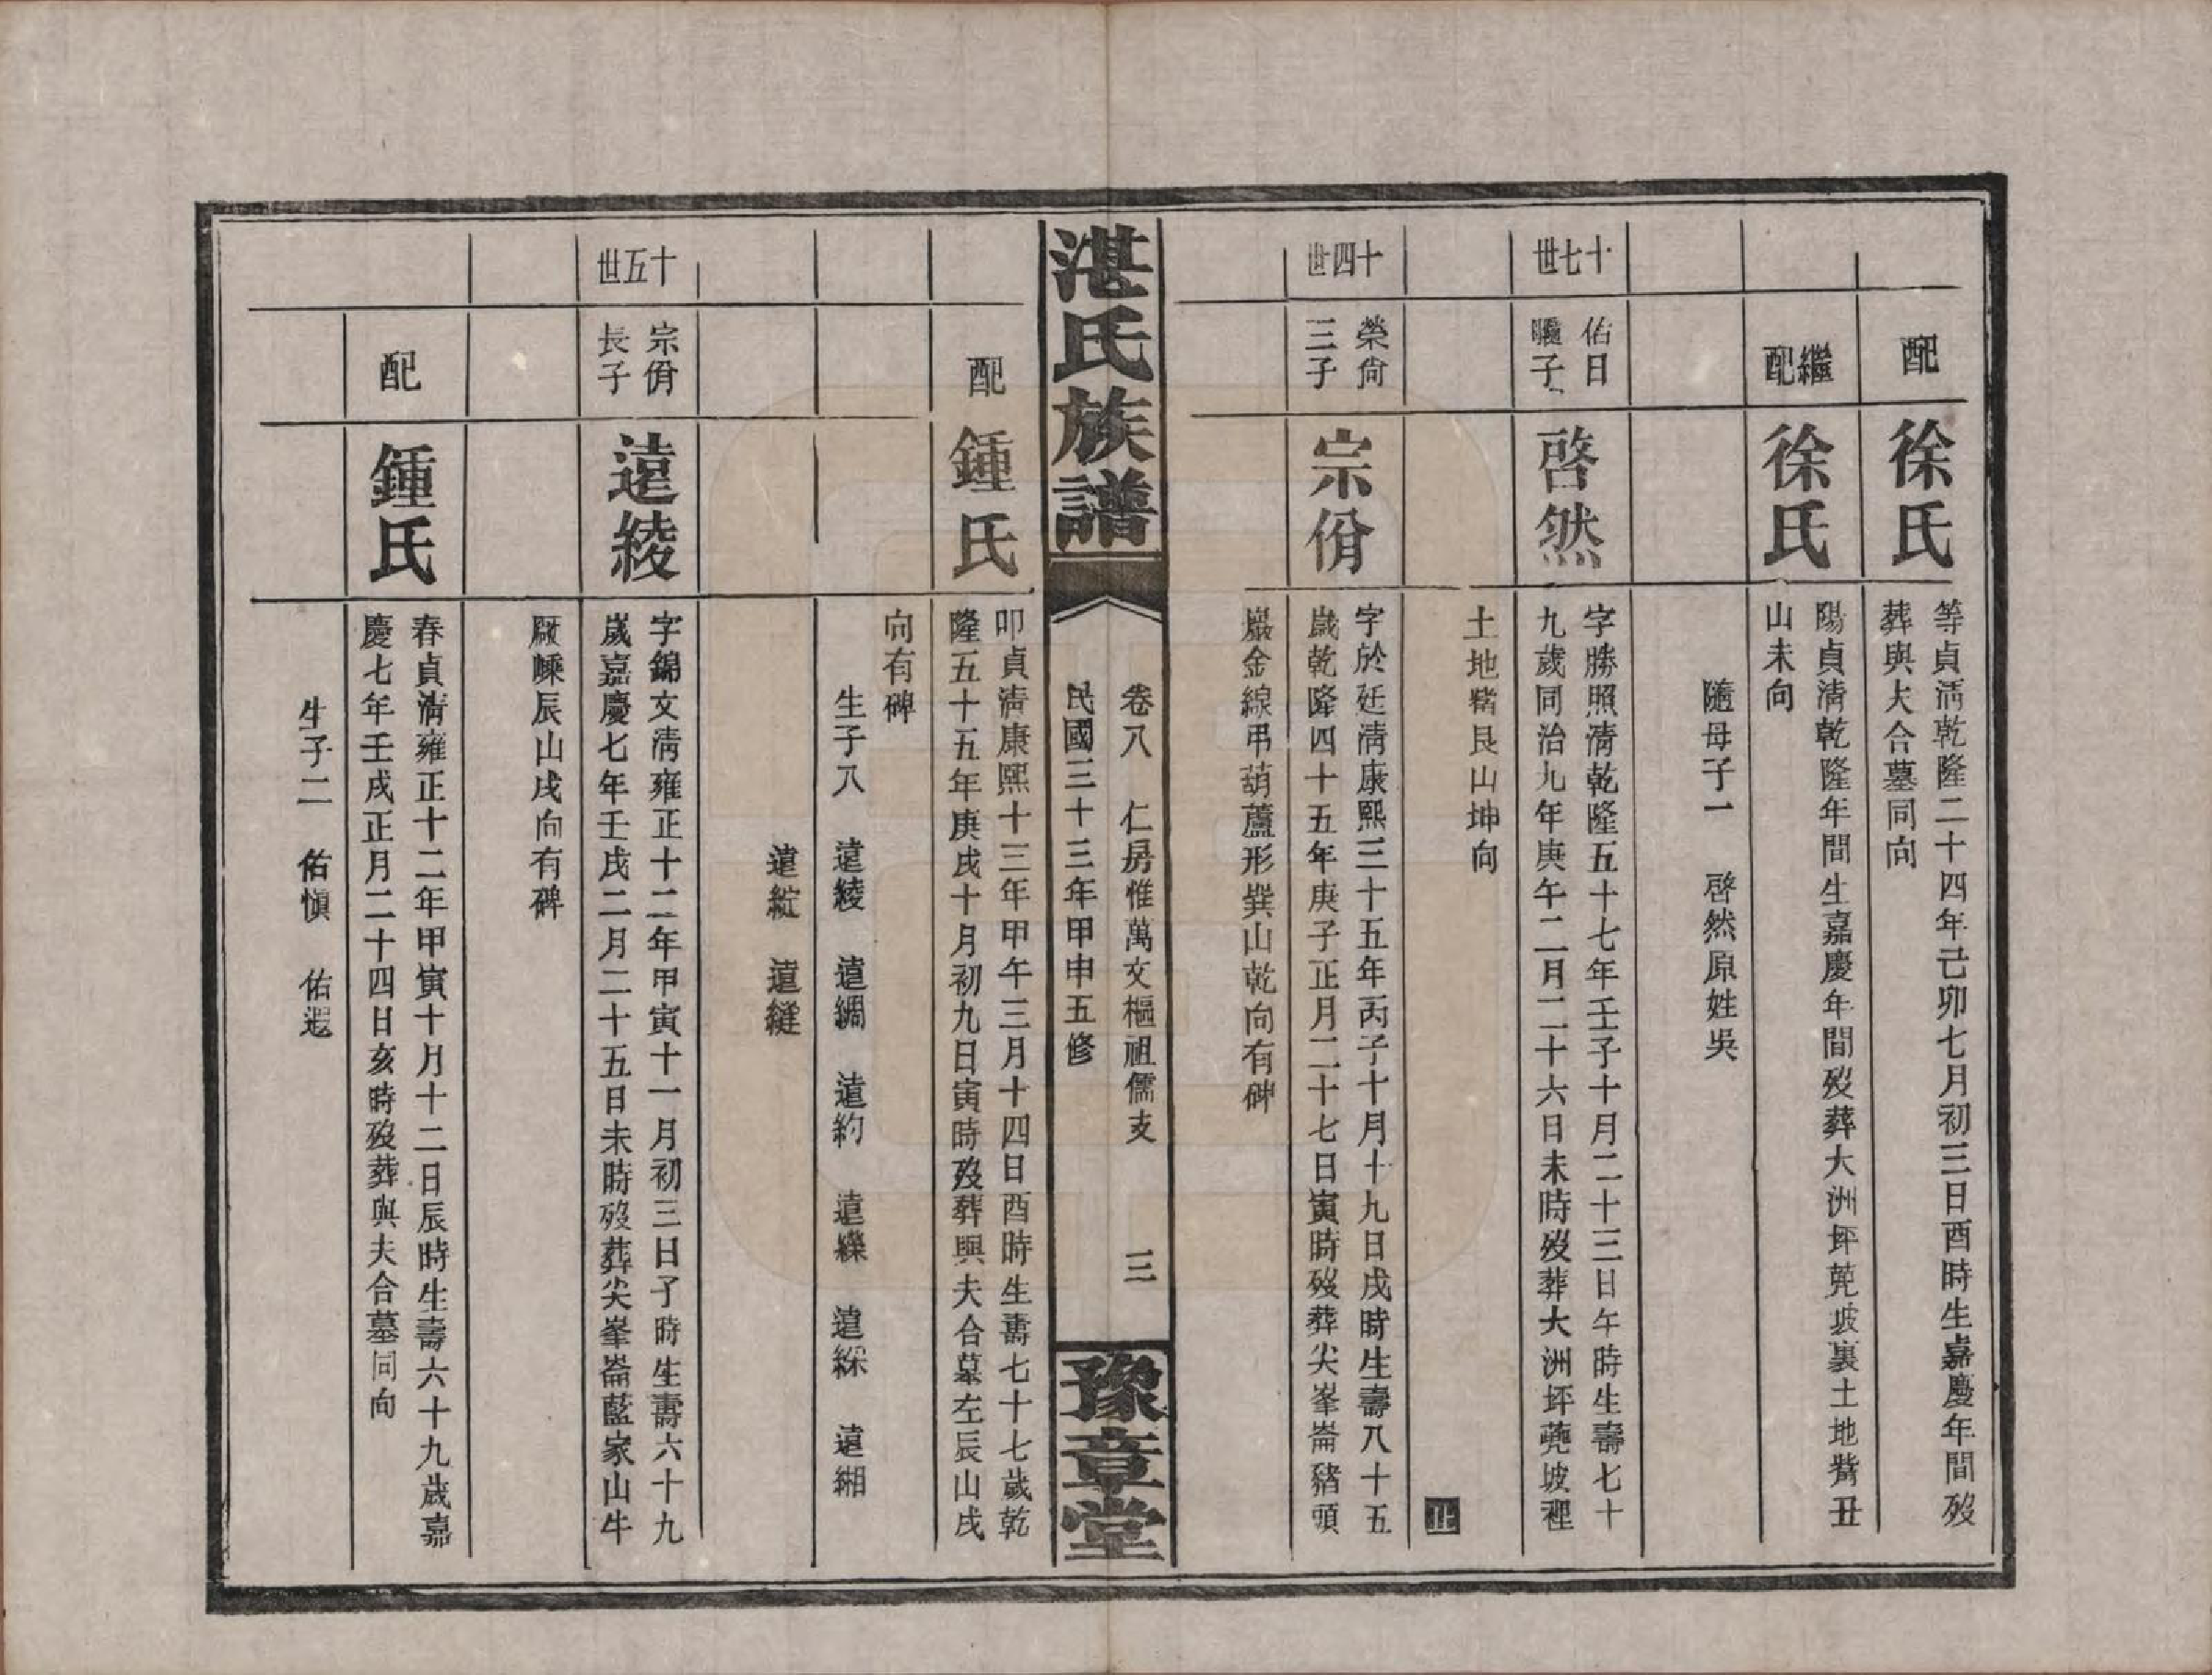 配
徐氏
等貞清乾隆二十四年己卯七月初三日酉時生嘉慶年間歿
葬與夫合墓同向
繼配
徐氏
陽貞清乾隆年間生嘉慶年間歿葬大洲坪蕘坡裏土地嘴丑
山未向
隨母子一　啓然原姓吳
十七世
佑日
嗣子
啓然
字勝照清乾隆五十七年壬子十月二十三日午時生壽七十
九歲同治九年庚午二月二十六日未時歿葬大洲坪蕘坡裡
土地嘴艮山坤向
止
十四世
榮尙
三子
宗佾
字於廷清康熙三十五年丙子十月十九日戌時生壽八十五
歲乾隆四十五年庚子正月二十七日寅時歿葬尖峯崙豬頭
巖金線弔葫蘆形巽山乾向有碑
湛氏族譜
卷八　仁房惟萬文樞祖儒支　三
民國三十三年甲申五修
豫章堂
配
鍾氏
叩貞清康熙十三年甲午三月十四日酉時生壽七十七歲乾
隆五十五年庚戌十月初九日寅時歿葬與夫合墓左辰山戌
向有碑
生子八　遠綾　遠綢　遠約　遠繰　遠綵　遠緗
遠綻　遠縫
十五世
宗佾
長子
遠綾
字錦文清雍正十二年甲寅十一月初三日子時生壽六十九
歲嘉慶七年壬戌二月二十五日未時歿葬尖峯崙藍家山牛
厰嵊辰山戌向有碑
配
鍾氏
春貞清雍正十二年甲寅十月十二日辰時生壽六十九歲嘉
慶七年壬戌正月二十四日亥時歿葬與夫合墓同向
生子二　佑愼　佑遐